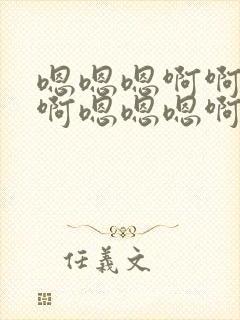 嗯嗯嗯啊啊
啊嗯嗯嗯啊
任義文